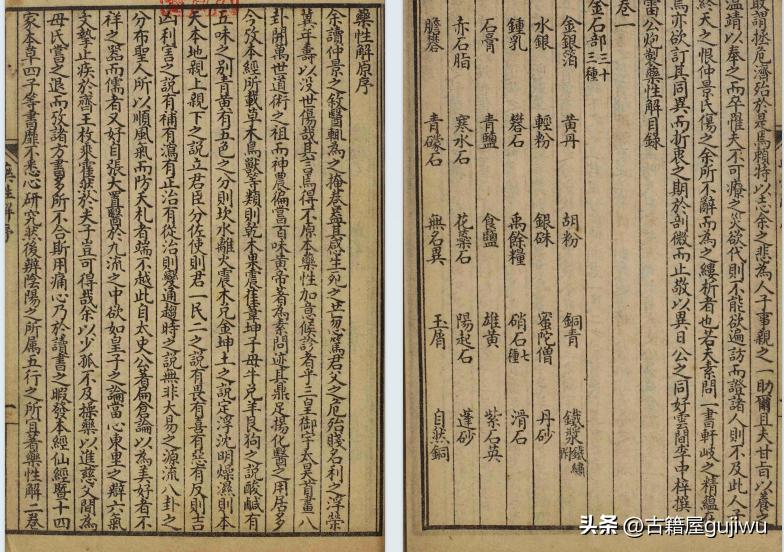 藥性解原序
余讀仲景之敘醫輒為之掩卷蓋其感生死之世篤君父之危殆賤名利之浮榮
年壽以沒世傷哉其言焉得不原本藥性加意候診者乎三皇御宇太昊首畫八
卦開萬世道術之祖而神農徧嘗百味黃帝著為素問迹其鼎足揚化醫之用居多
今攷本經所載草木鳥獸等類則乾木果震萑葦坤子母牛兌羊艮狗之說酸鹹有
五味之別青黃有五色之分則坎水離火震木兌金坤土之說定浮沈明燥濕則本
天本地親上親下之說立君臣分佐使則君一民二之說有畏有喜有惡有反則吉
凶利害之說有補有瀉有正治有從治則變通趨時之說無非大易之源流八卦之
分布聖人所以順風氣而防夭札者端不越此自太史公著扁倉論以為美好者不
祥之器而儒者又好自張大置醫於九流之中欲如皇子之論當心東里之辯六氣
文摯止疾於齊王枚乘霍然於夫子豈可得哉余以少孤不及操藥以進慈父間為
母氏嘗之退而攷諸方書多所不合斯用痛心乃於讀書之暇發本經仙經暨十四
家本草四子等書靡不悉心研究然後辨陰陽之所屬五行之所宜著藥性解二卷
藥性解序
敢謂拯危濟殆於是焉賴特以志余之悲為人子事親之一助爾且夫甘旨以養之
溫凊以奉之而卒罹夭不可療之災欲代則不能欲遍訪而證諸人則不及此人子
終天之恨仲景氏傷之余所不辭而為之縷析者也若夫素問一書軒岐之精蘊
焉亦欲訂其同異而折衷之期於剖微而止敬以異日公之同好雲間李中梓撰
雷公炮製藥性解目錄
卷一
金石部三十三種
金銀箔 黃丹 胡粉 銅青 鐵漿附鐵鏽
水銀 輕粉 銀硃 蜜陀僧 丹砂
鍾乳 礬石 禹餘糧 硝石七種 滑石
石膏 青鹽 食鹽 雄黃 紫石英
赤石脂 寒水石 花蘂石 陽起石 蓬砂
膽礬 青礞石 無名異 玉屑 自然銅
头条 @古籍屋gujiwu